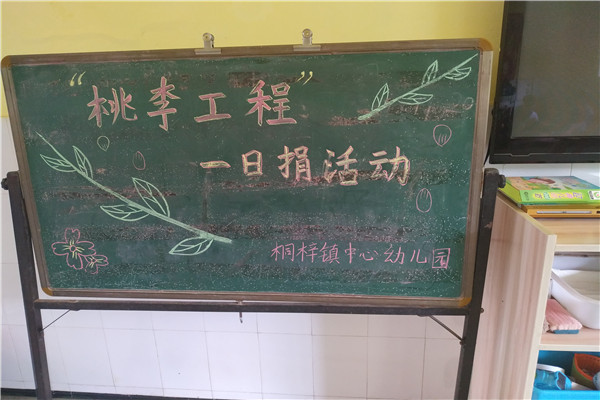 "桃李工程"
一日捐活动
桐梓镇中心幼儿园